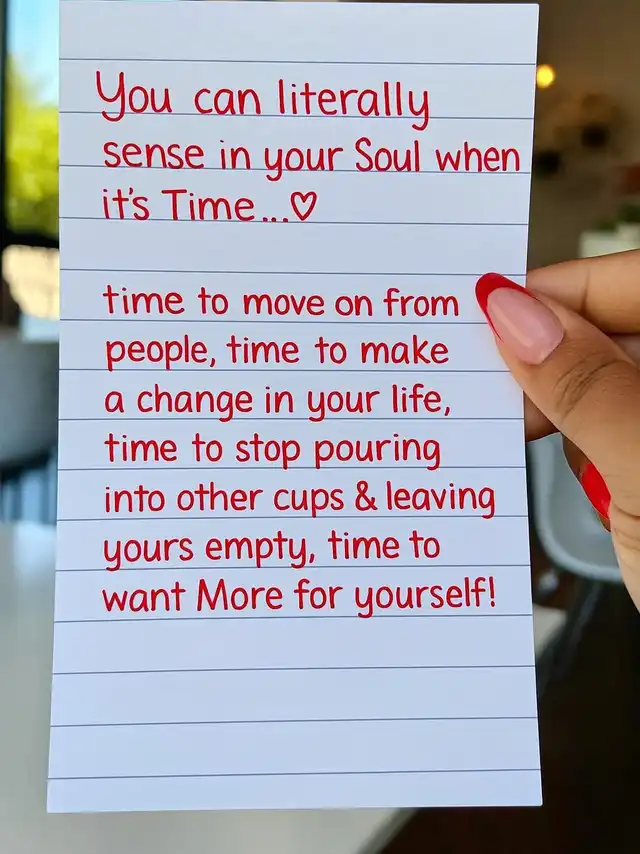 You can literally
sense in your Soul when
it's Time...♡
time to move on from
people, time to make
a change in your life,
time to stop pouring
into other cups & leaving
yours empty, time to
want More for yourself!